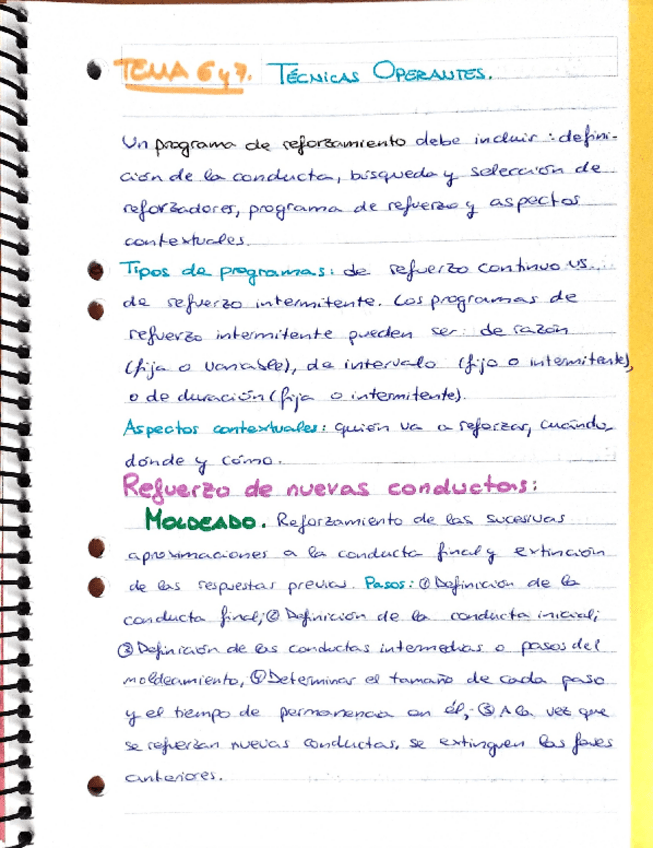 TEMA 6 y 7. TÉCNICAS OPERANTES.
Un programa de reforzamiento debe incluir: defini-
ción de la conducta, búsqueda y selección de
reforzadores, programa de refuerzo y aspectos
contextuales.
Tipos de programas: de refuerzo continuo vs.
de refuerzo intermitente. Los programas de
refuerzo intermitente pueden ser: de razón
(fija o variable), de intervalo (fijo o intermitente),
o de duración (fija o intermitente).
Aspectos contextuales: quién va a reforzar, cuándo,
dónde y cómo.
Refuerzo de nuevas conductas:
MOLDEADO. Reforzamiento de las sucesivas
aproximaciones a la conducta final y extinción
de las respuestas previas. Pasos: ① Definición de la
conducta final; ② Definición de la conducta inicial;
③ Definición de las conductas intermedias o pasos del
moldeamiento, ④ Determinar el tamaño de cada paso
y el tiempo de permanencia en él; ⑤ A la vez que
se refuerzan nuevas conductas, se extinguen las fases
anteriores.